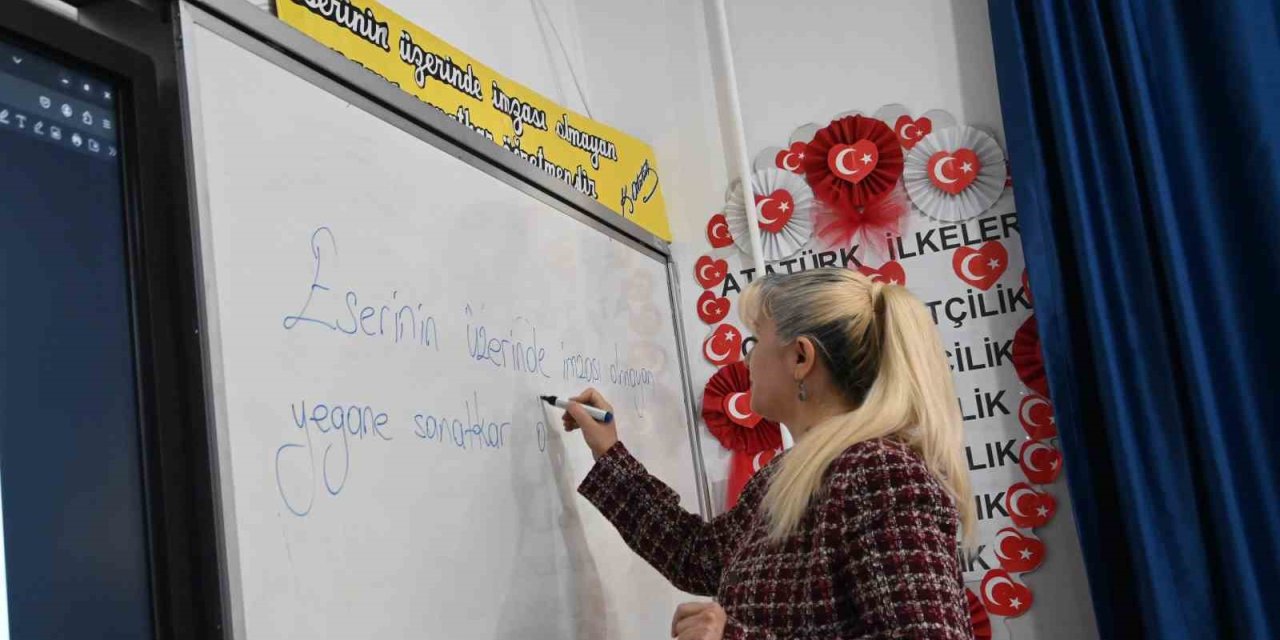 serinin üzerinde imzası olmayan
sanatkar öğretmendir
K. Atatürk
Eserinin üzerinde imzası olmayan
yegane sanatkar ö
ATATÜRK İLKELER
TÇİLİK
ÇİLİK
LİK
LIK
IK
IK